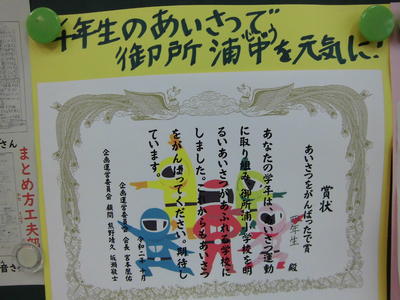 年生のあいさつで
御所浦小を元気に!
賞状
あいさつをがんばったで賞
年生 殿
あなたの学年は、あいさつ運動
に取り組み御所浦小学校を明
るいあいさつがあふれる学校に
しました。これからもあいさつ
をがんばってください。期待し
ています。
令和二年 十月
企画運営委員会 会長 宮本
企画運営委員会 顧問 熊野
まとめ方工夫
さん
音さん